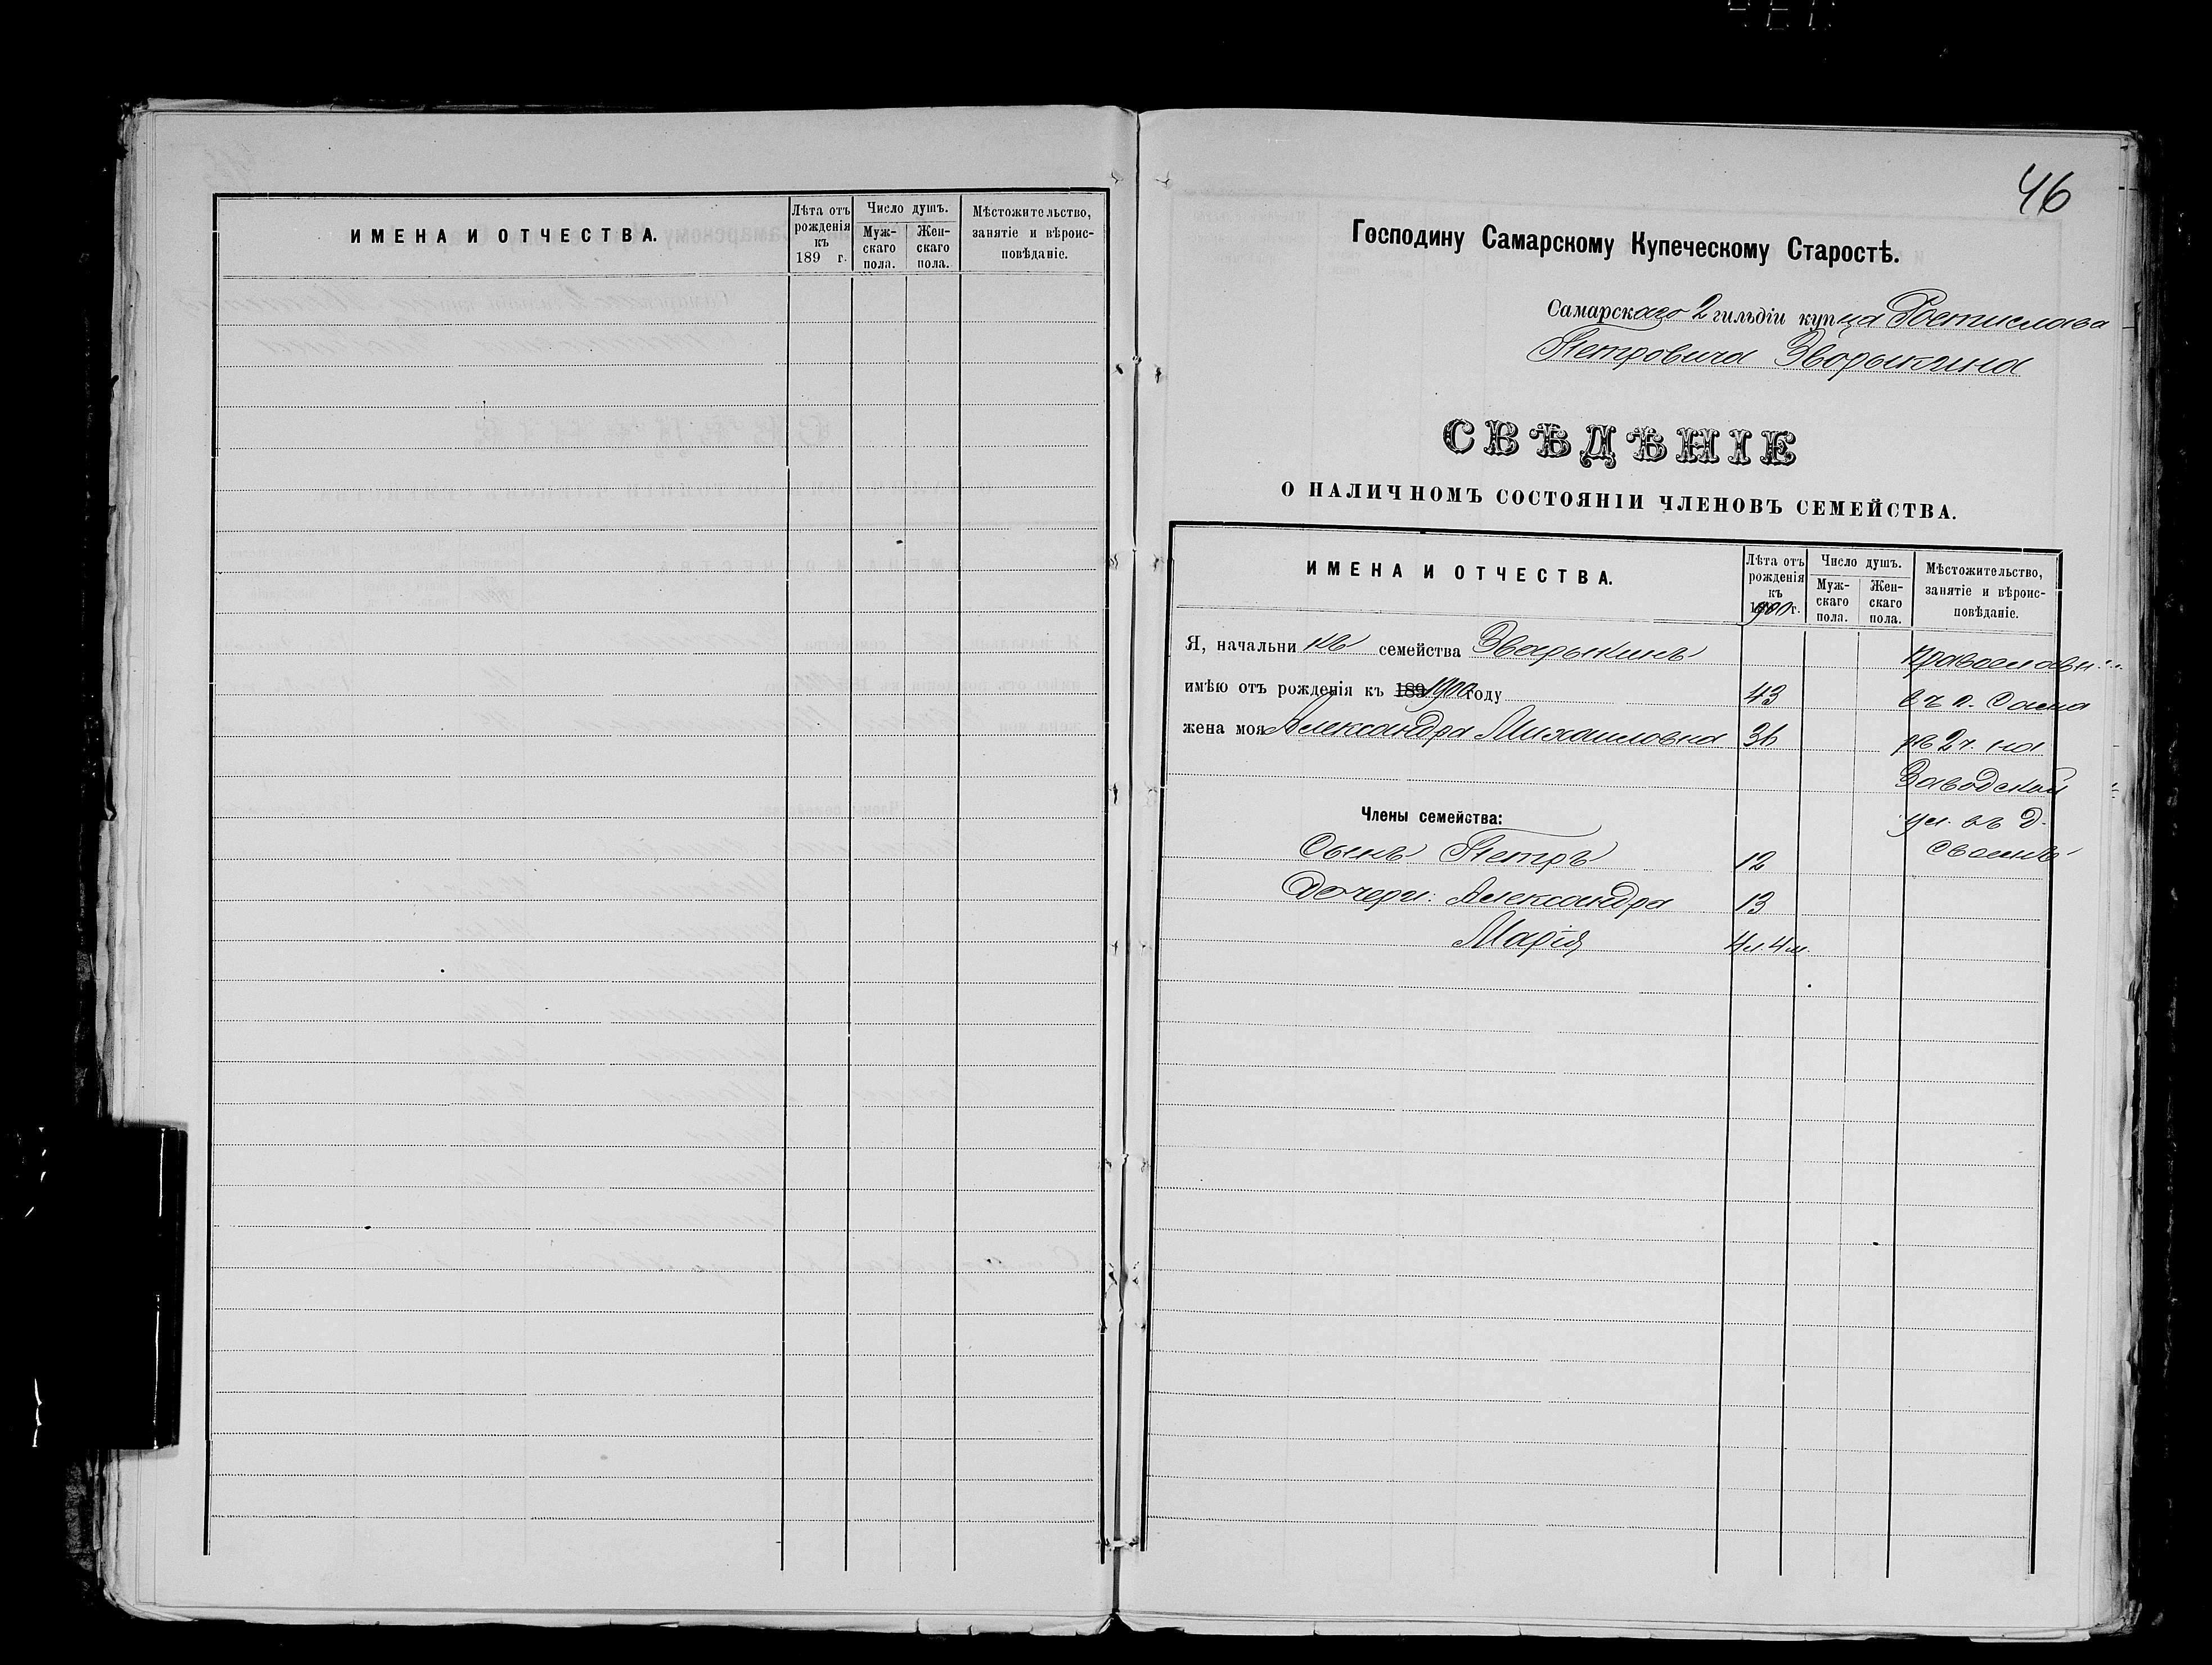 ИМЕНА И ОТЧЕСТВА.
Лѣта отъ рожденія къ 189 г.
Число душъ.
Мужскаго пола.
Женскаго пола.
Мѣстожительство, занятіе и вѣроисповѣданіе.
46
Господину Самарскому Купеческому Старостѣ.
Самарскаго 2 гильдіи купца Ростислава
Петровича Зворыкина
СВѢДѢНІЕ
О НАЛИЧНОМЪ СОСТОЯНІИ ЧЛЕНОВЪ СЕМЕЙСТВА.
ИМЕНА И ОТЧЕСТВА.
Лѣта отъ рожденія къ 1900 г.
Число душъ.
Мужскаго пола.
Женскаго пола.
Мѣстожительство, занятіе и вѣроисповѣданіе.
Я, начальникъ семейства Зворыкинъ
имѣю отъ рожденія къ 189 1900 году 43
жена моя Александра Михаиловна 36
Члены семейства:
Сынъ Петръ 12
Дочери: Александра 13
Марія 4 л. 4 м.
православн.
въ г. Сама
рѣ 2 ч. на
Заводской
ул. въ д.
своемъ